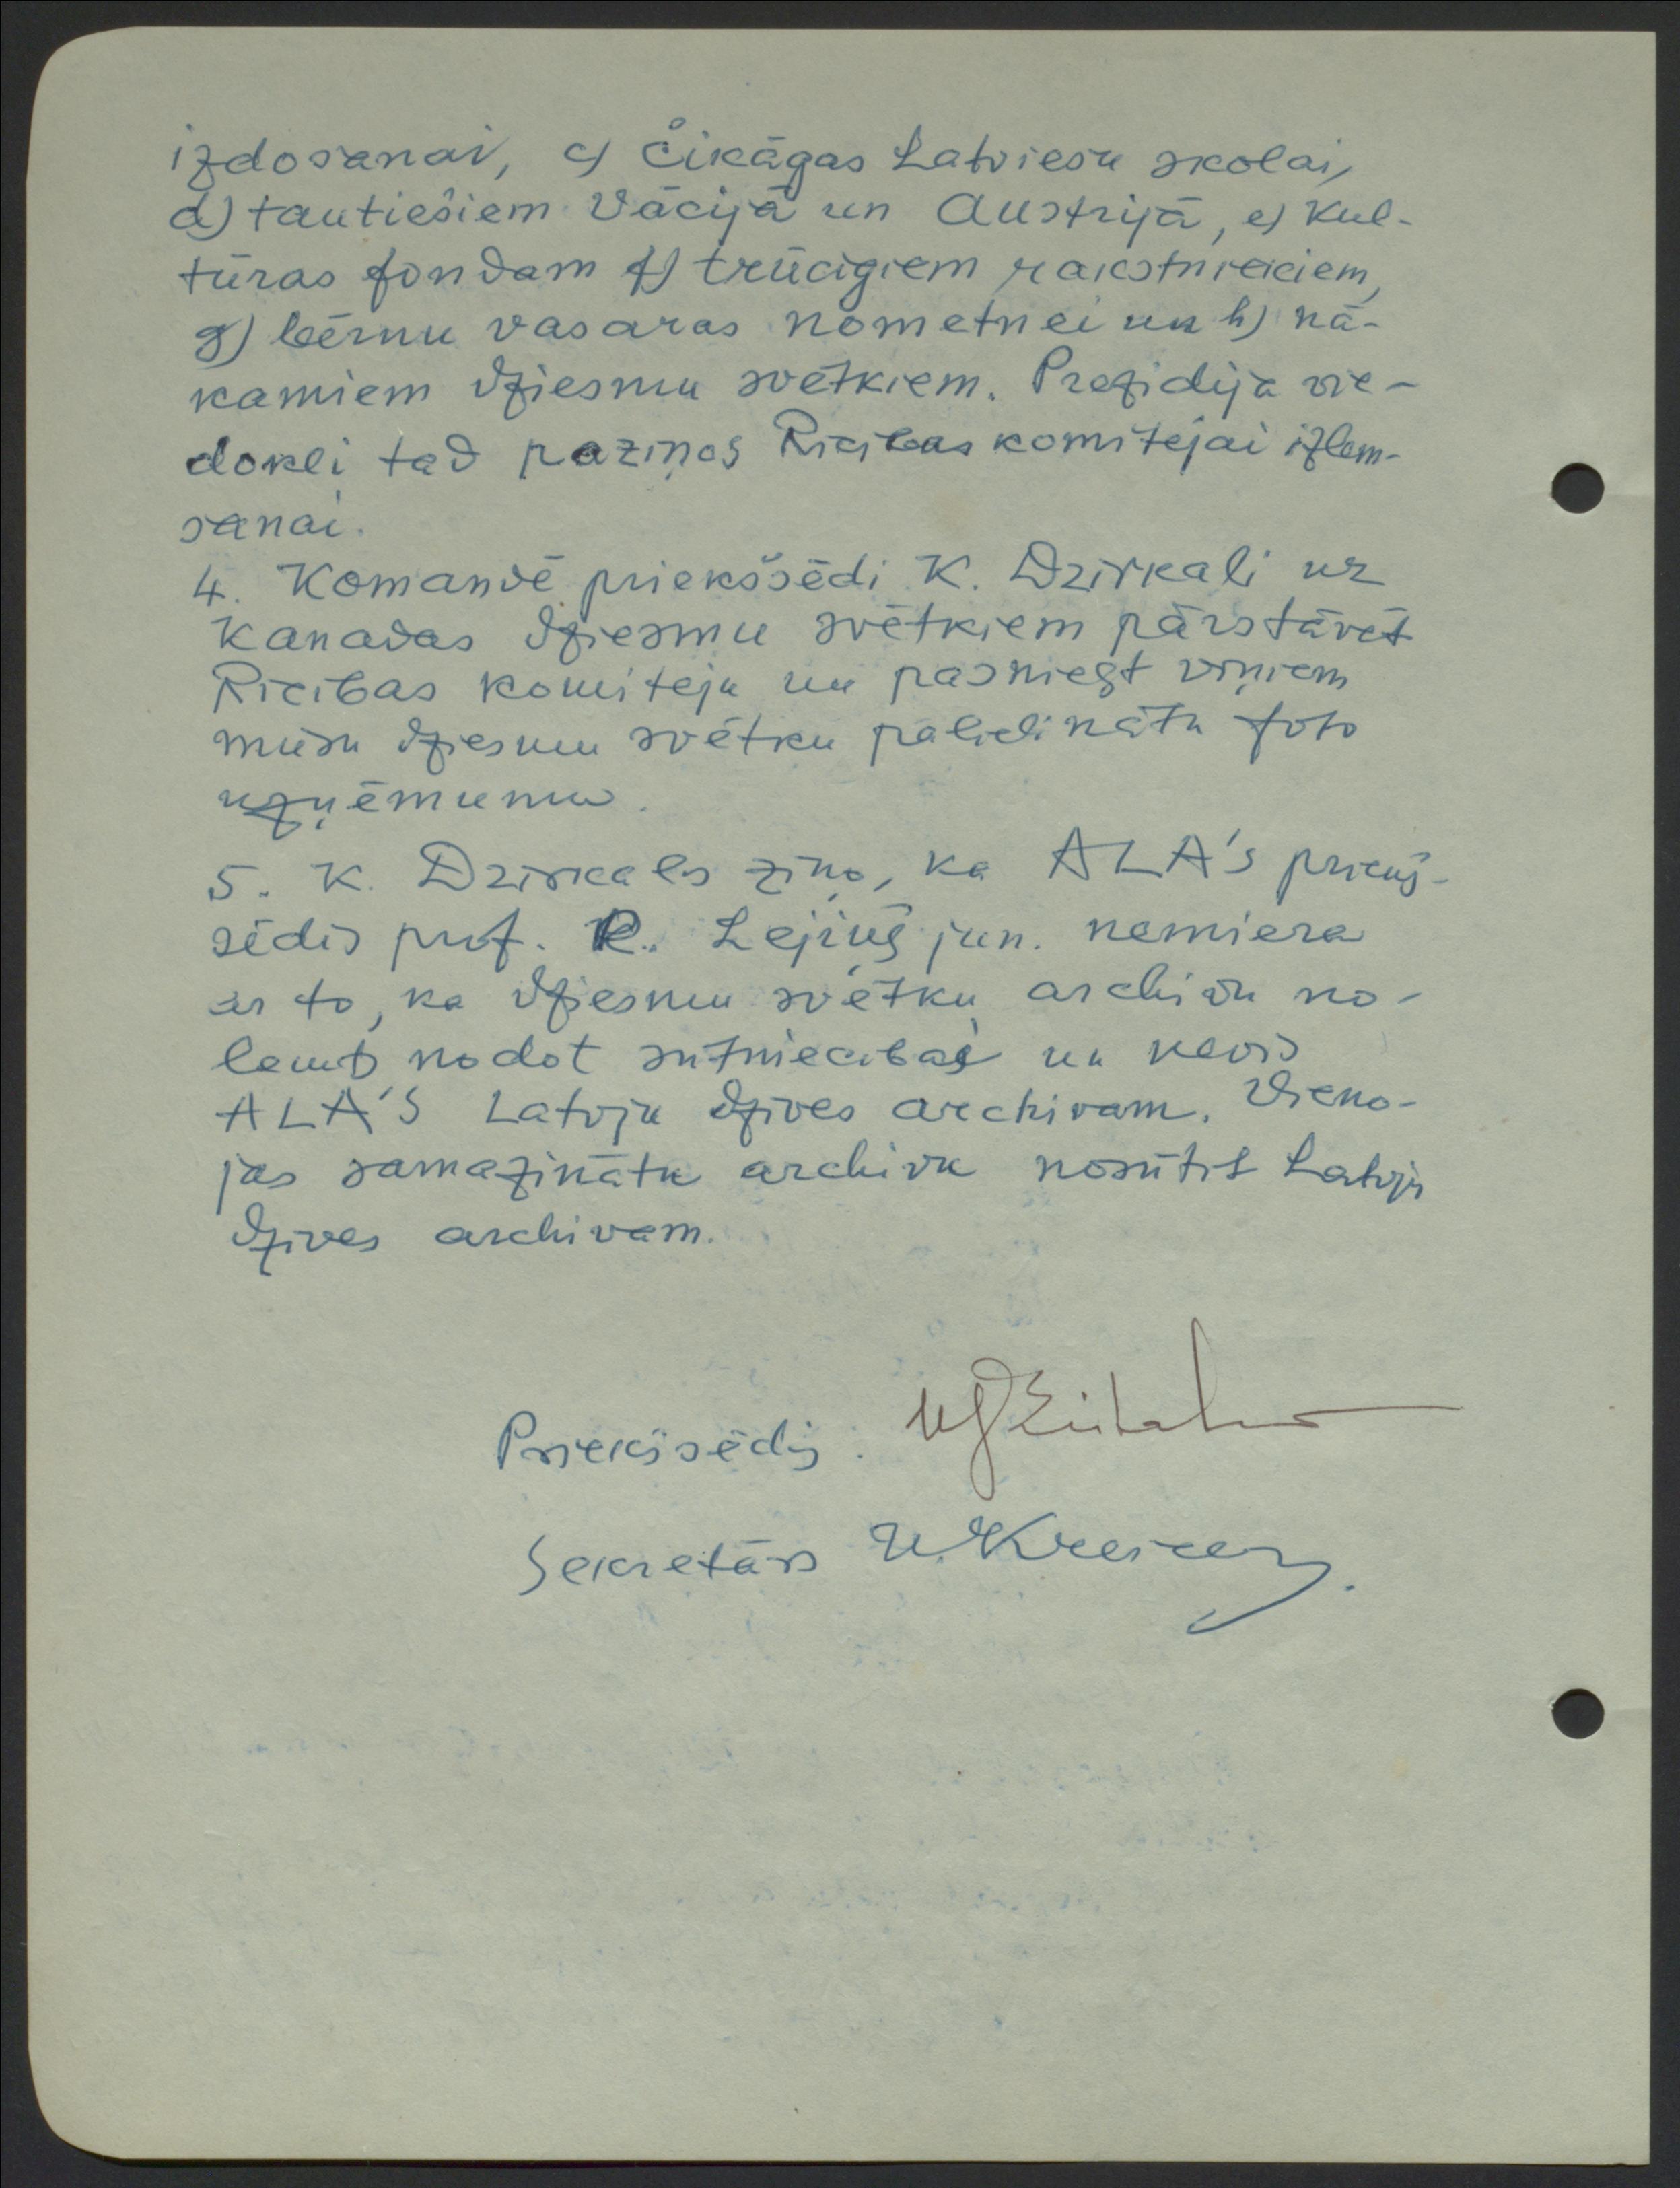 izdošanai, c) Čikāgas Latviešu skolai,
d) tautiešiem Vācijā un Austrijā, e) Kul-
tūras fondam f) trūcīgiem rakstniekiem,
g) bērnu vasaras nometnei un h) nā-
kamiem dziesmu svētkiem. Prezidija vie-
dokli tad paziņos Rīcības komitejai izlem-
šanai.
4. Komandē priekšsēdi K. Dzirkali uz
Kanadas dziesmu svētkiem pārstāvēt
Rīcības komiteju un pasniegt viņiem
mūsu dziesmu svētku palielinātu foto
uzņēmumu.
5. K. Dzirkals ziņo, ka ALA's priekš-
sēdis prof. P. Lejiņš jun. nemiera
ar to, ka dziesmu svētku archivu no-
lemts nodot sūtniecībai un nevis
ALA'S Latvju dzīves archivam. Vieno-
jas samazinātu archivu nosūtīt Latvju
dzīves archivam.
Priekšsēdis
Sekretārs